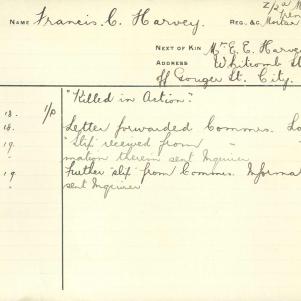 NAME Francis. C. Harvey. REG. &C. Mortar
NEXT OF KIN Mr E. E. Harve
ADDRESS Whitcomb St
off Gouger St. City.
"Killed in Action".
18. 1/P
18. Letter forwarded Commrs. Lo
19. "Slip" received from "
mation thereon sent Inquirer
19 Further "slip" from Commrs. Informa
" sent Inquirer